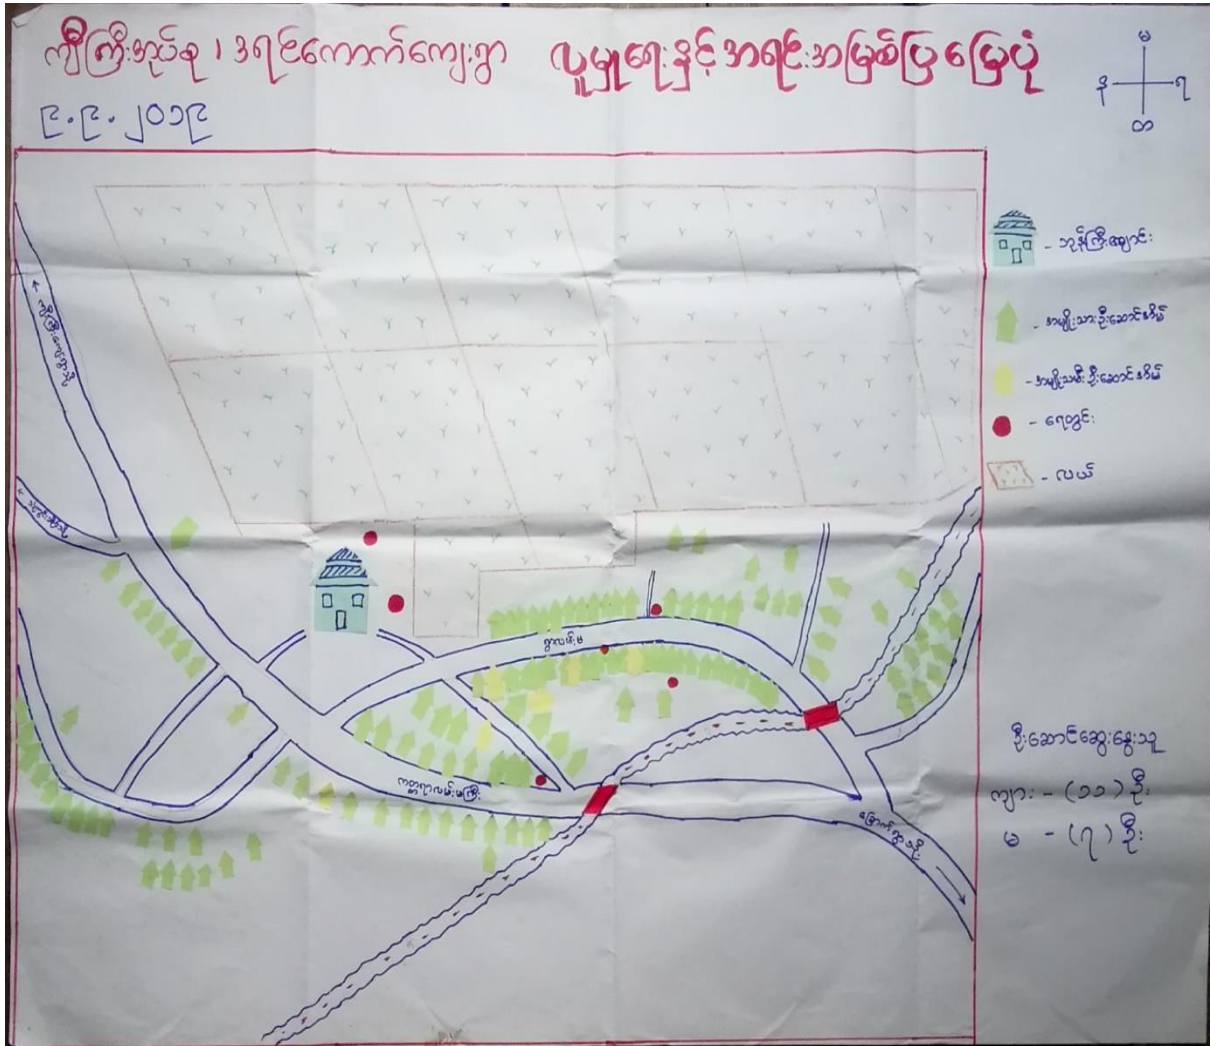 ကျီကြီးအုပ်စု ၊ ဒရင်ကောက်ကျေးရွာ လူမှုရေးနှင့် အရင်းအမြစ်ပြ မြေပုံ
၉.၉.၂၀၁၉
မ
န ရ
တ
- ဘုန်းကြီးကျောင်း
- အမျိုးသားဦးဆောင်အိမ်
- အမျိုးသမီးဦးဆောင်အိမ်
- ရေတွင်း
- လယ်
ကျီကြီးကျေးရွာသို့
ရွာလမ်းမ
ကတ္တရာလမ်းမကြီး
မြောက်ရွာသို့
ဦးဆောင်ဆွေးနွေးသူ
ကျား - (၁၁) ဦး
မ - (၇) ဦး